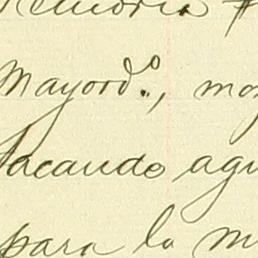 Mayord.º, mo
sacando agu
para la m